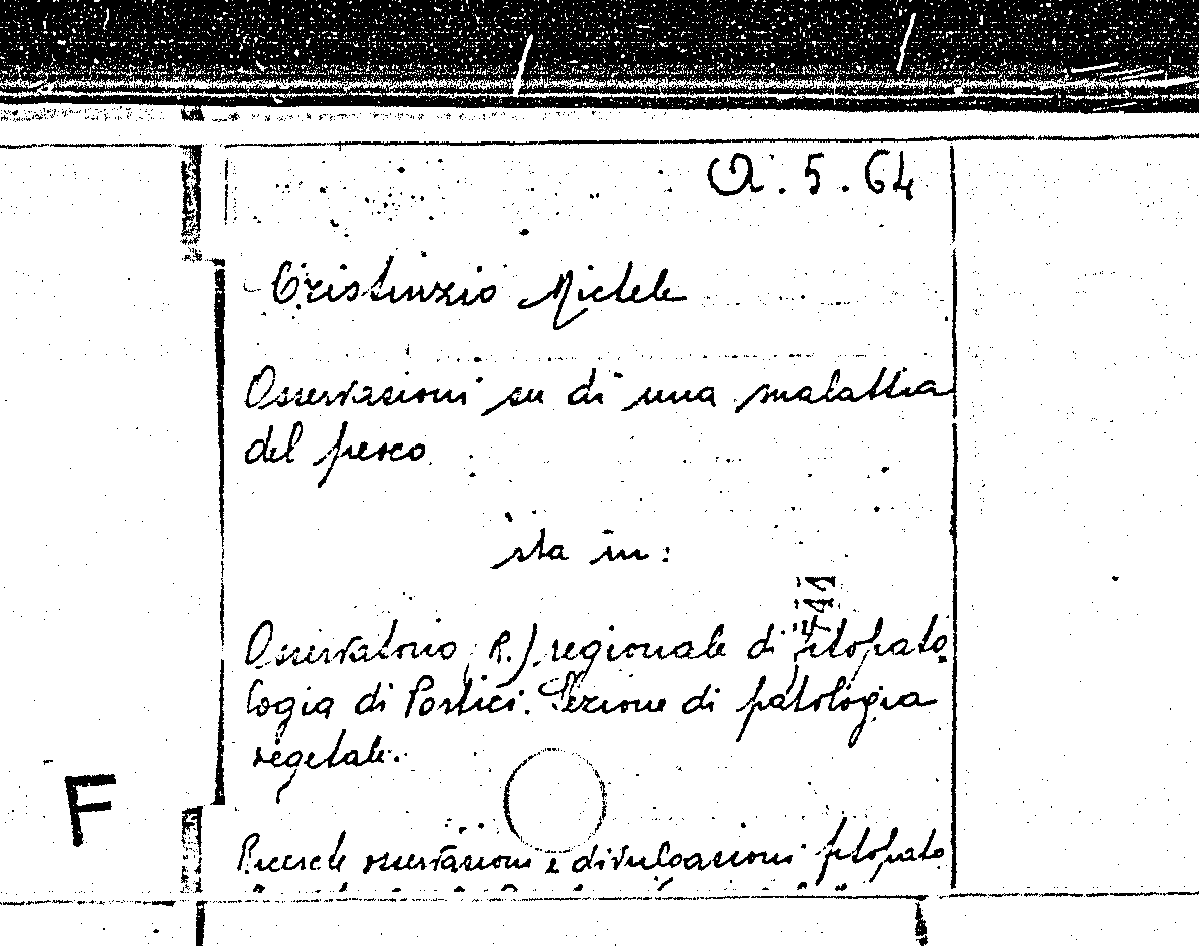 A.5.64
Cristinzio Michele
Osservazioni su di una malattia
del pesco
sta in:
Osservatorio (R.) regionale di fitopato
logia di Portici. Sezione di patologia
vegetale.
F
Ricerche osservazioni e divulgazioni fitopato